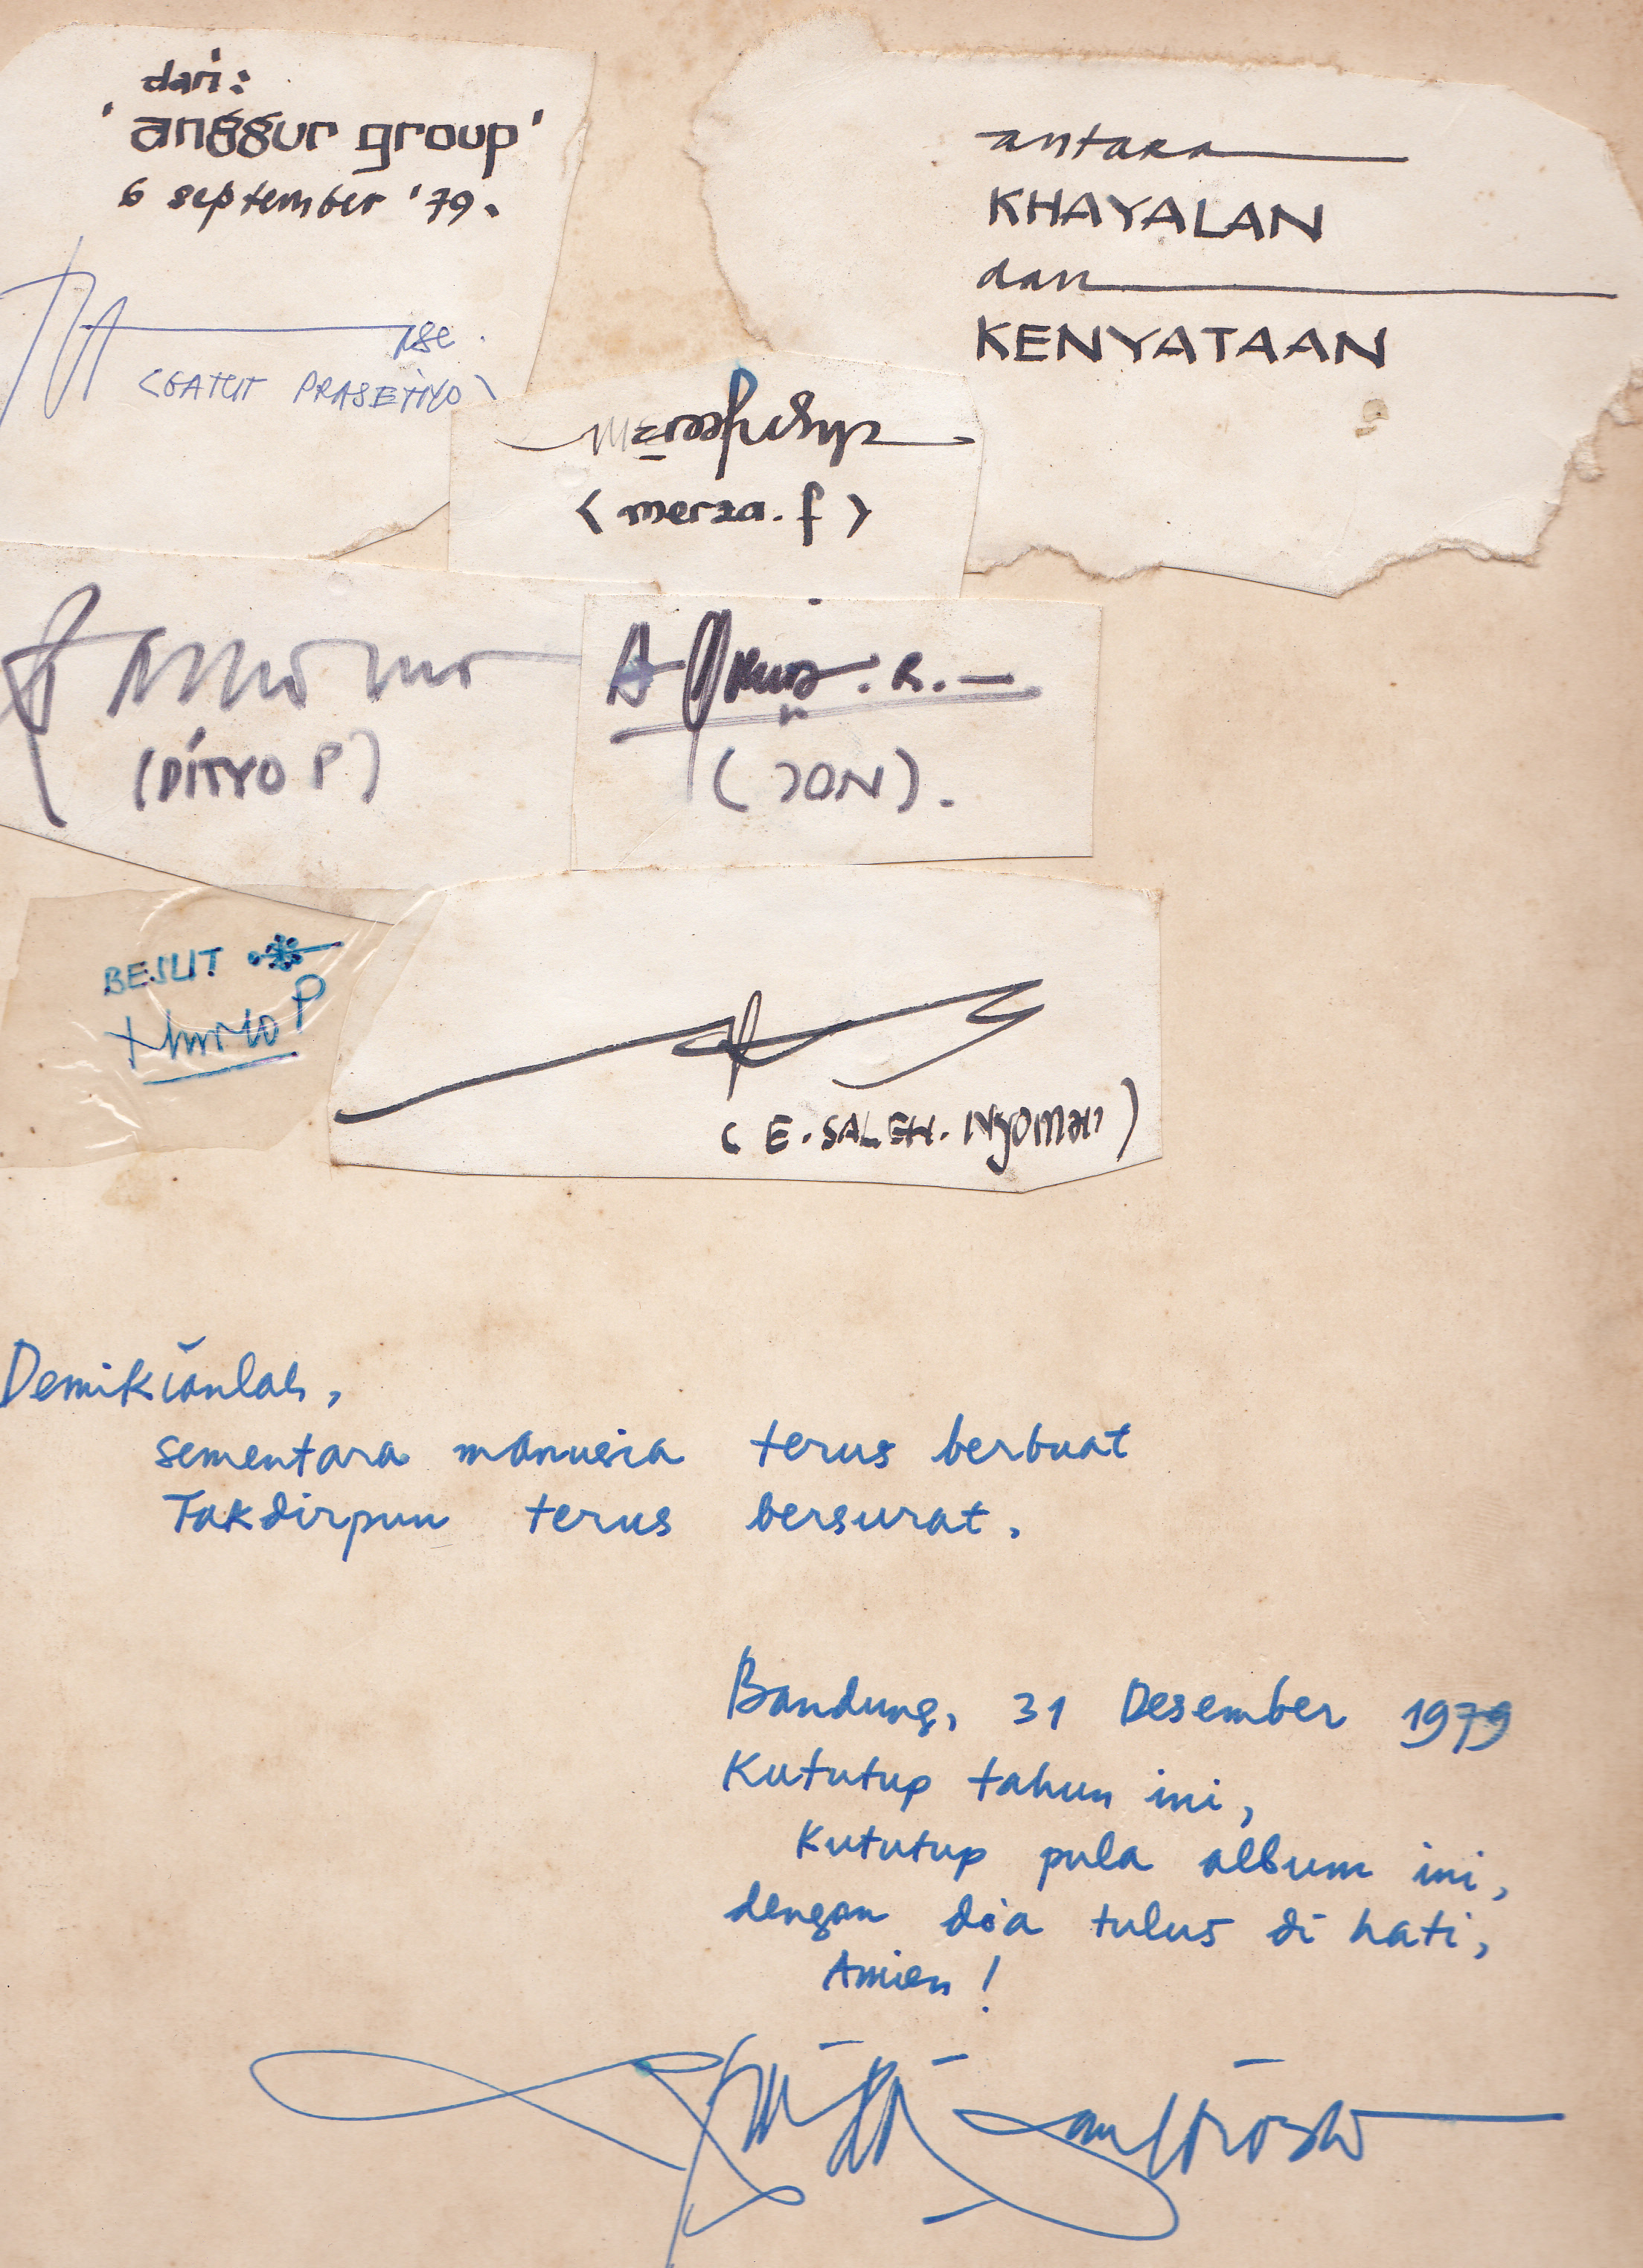 dari:
'anggur group'
6 september '79.
(GATUT PRASETIYO)
antara
KHAYALAN
dan
KENYATAAN
(merza.f)
(DITYO P)
(JON).
BESUT
(E. SALEH. Nyoman)
Demikianlah,
sementara manusia terus berbuat
Takdirpun terus bersurat.
Bandung, 31 Desember 1979
Kututup tahun ini,
Kututup pula album ini,
dengan do'a tulus di hati,
Amien!